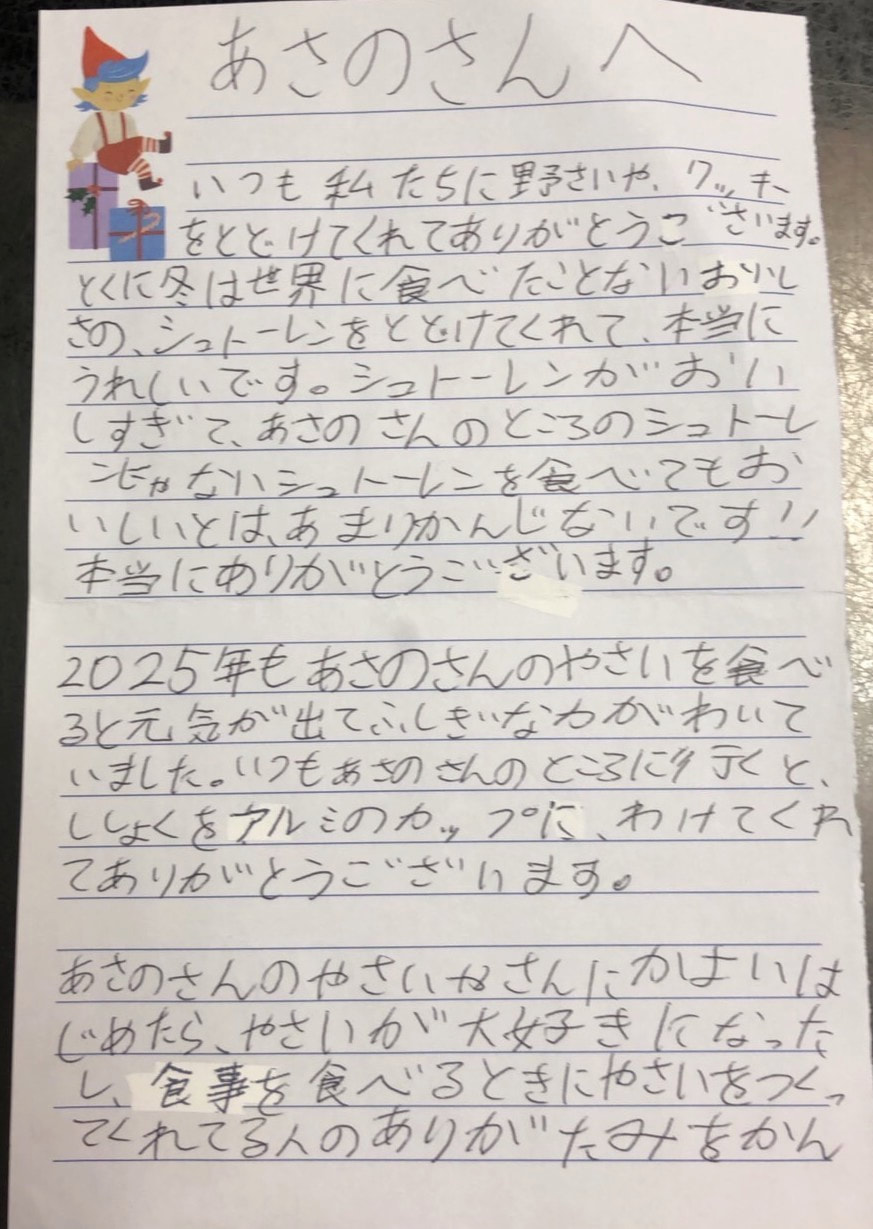 あさのさんへ
いつも私たちに野さいや、クッキー
をとどけてくれてありがとうございます。
とくに冬は世界に食べたことないおいし
さの、シュトーレンをとどけてくれて、本当に
うれしいです。シュトーレンがおい
しすぎて、あさのさんのところのシュトーレ
ンじゃないシュトーレンを食べてもお
いしいとは、あまりかんじないです!!
本当にありがとうございます。
2025年もあさのさんのやさいを食べ
ると元気が出てふしぎな力がわいて
いました。いつもあさのさんのところに行くと、
ししょくをアルミのカップに、わけてくれ
てありがとうございます。
あさのさんのやさいやさんにかよいは
じめたら、やさいが大好きになった
し、食事を食べるときにやさいをつくっ
てくれてる人のありがたみをかん